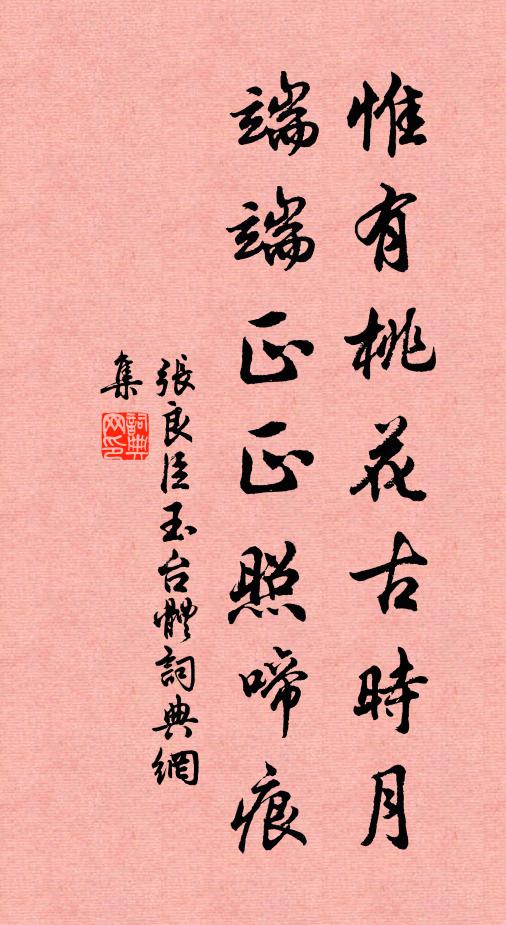 惟有桃花古時月
端端正正照啼痕
張良臣玉台體詞典網
集
詞典
网印